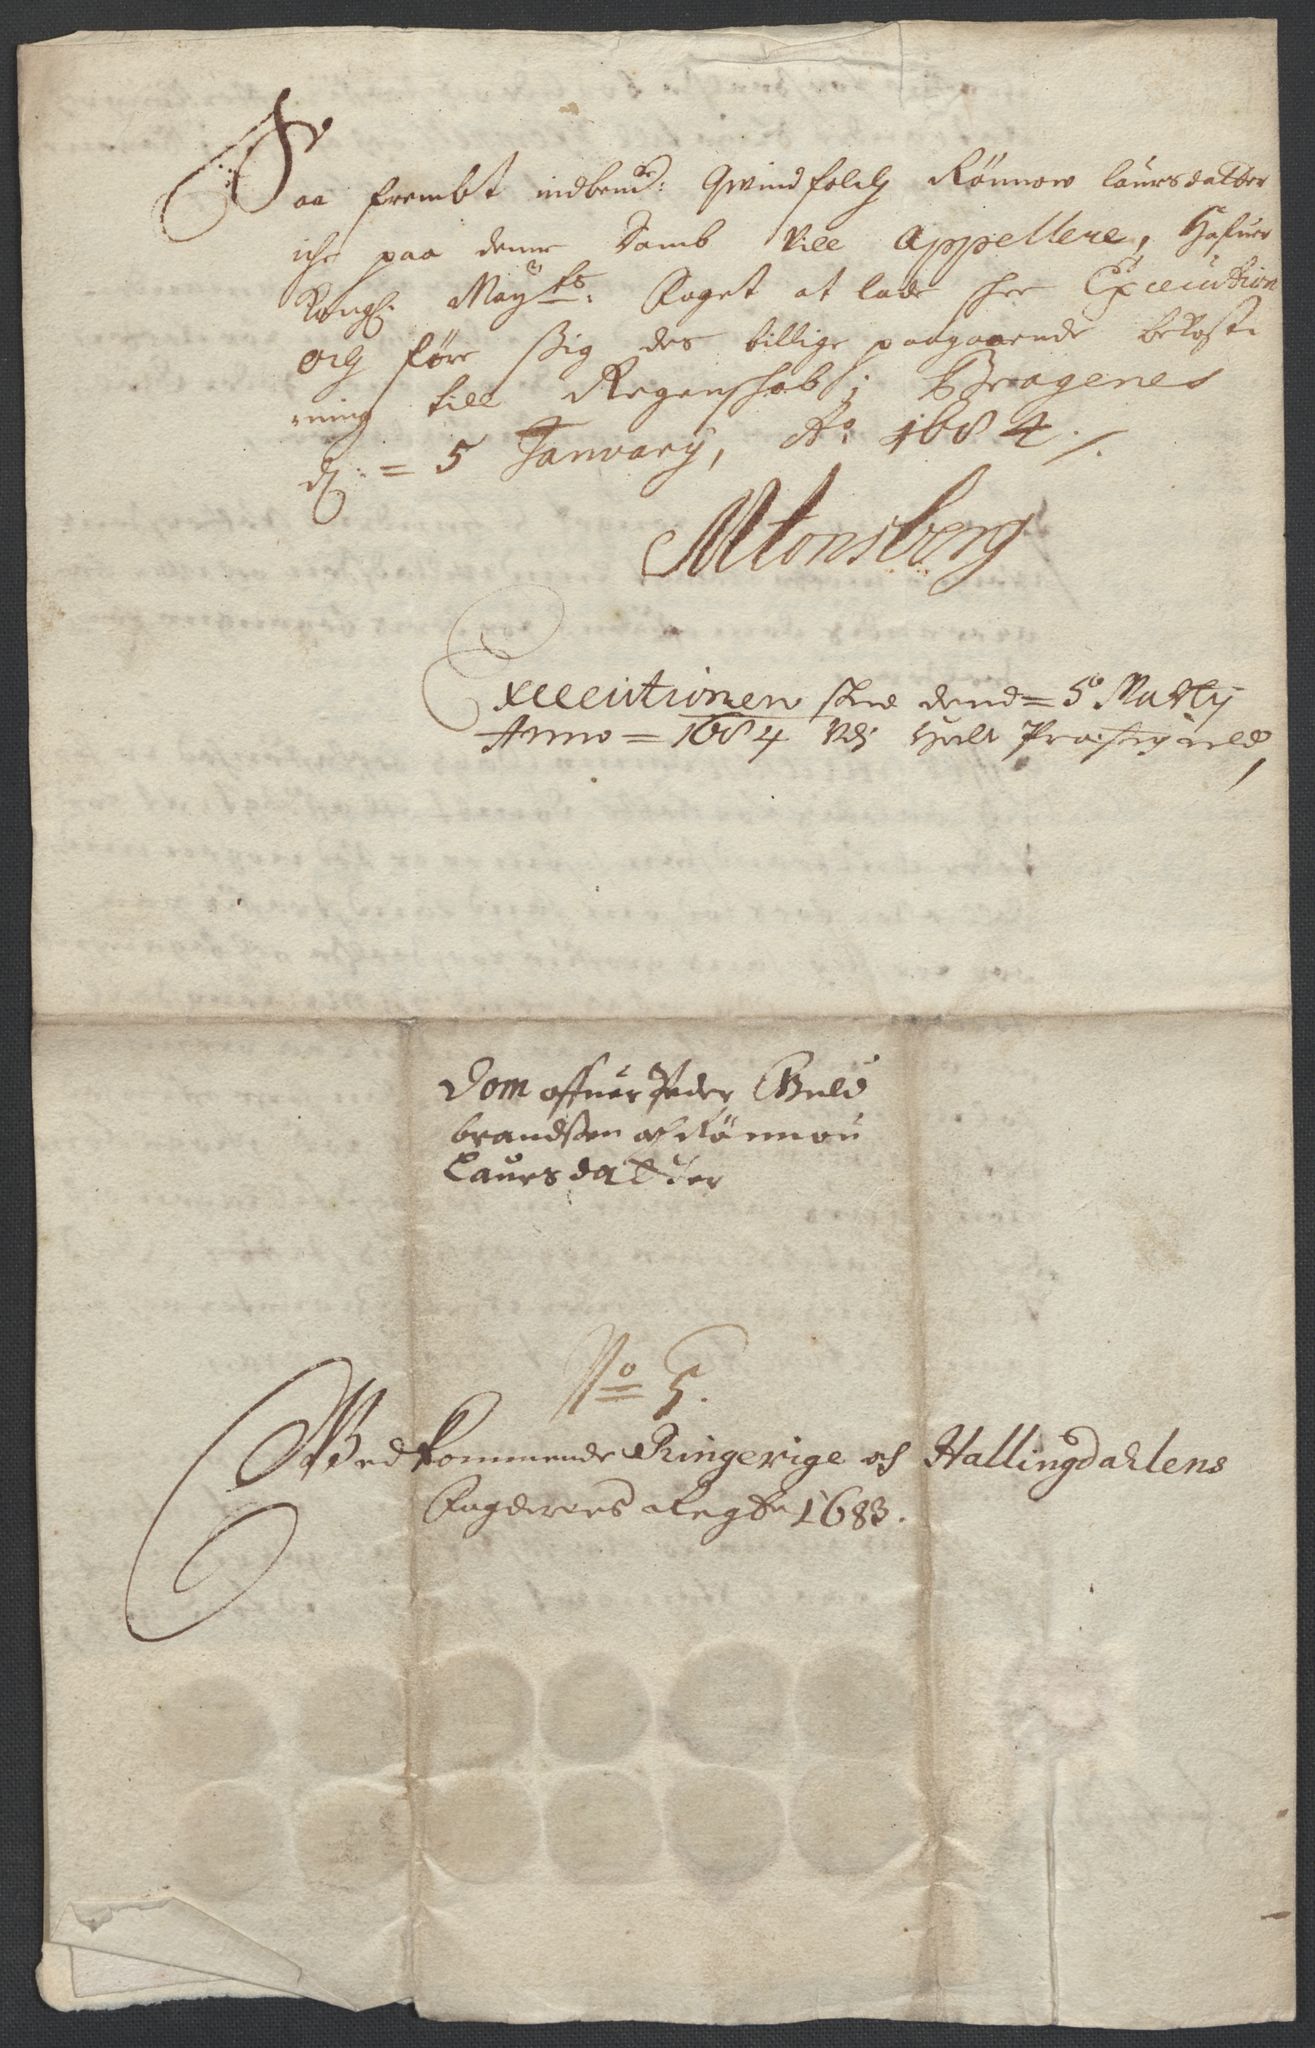 Saa frembt indbemte: Qvindfolch Rønnow Laursdatter
iche paa denne Domb vill Appellere, Hafuer
Kongl: Mayts: Foget at lade skee Execution
och føre sig des billige paagaaende bekost
ning till Regenskab; Bragenes
d: = 5 January, Ao: 1684 /.
MTonsberg
Executionen skee dend = 5 Marty
Anno = 1684 Ved Hole Præstegield,
Dom offuer Peder Guld
brandsen och Rønnou
Laursdatter
No 5.
Vedkommende Ringerige och Hallingdahlens
Fogderies Regsk 1683.